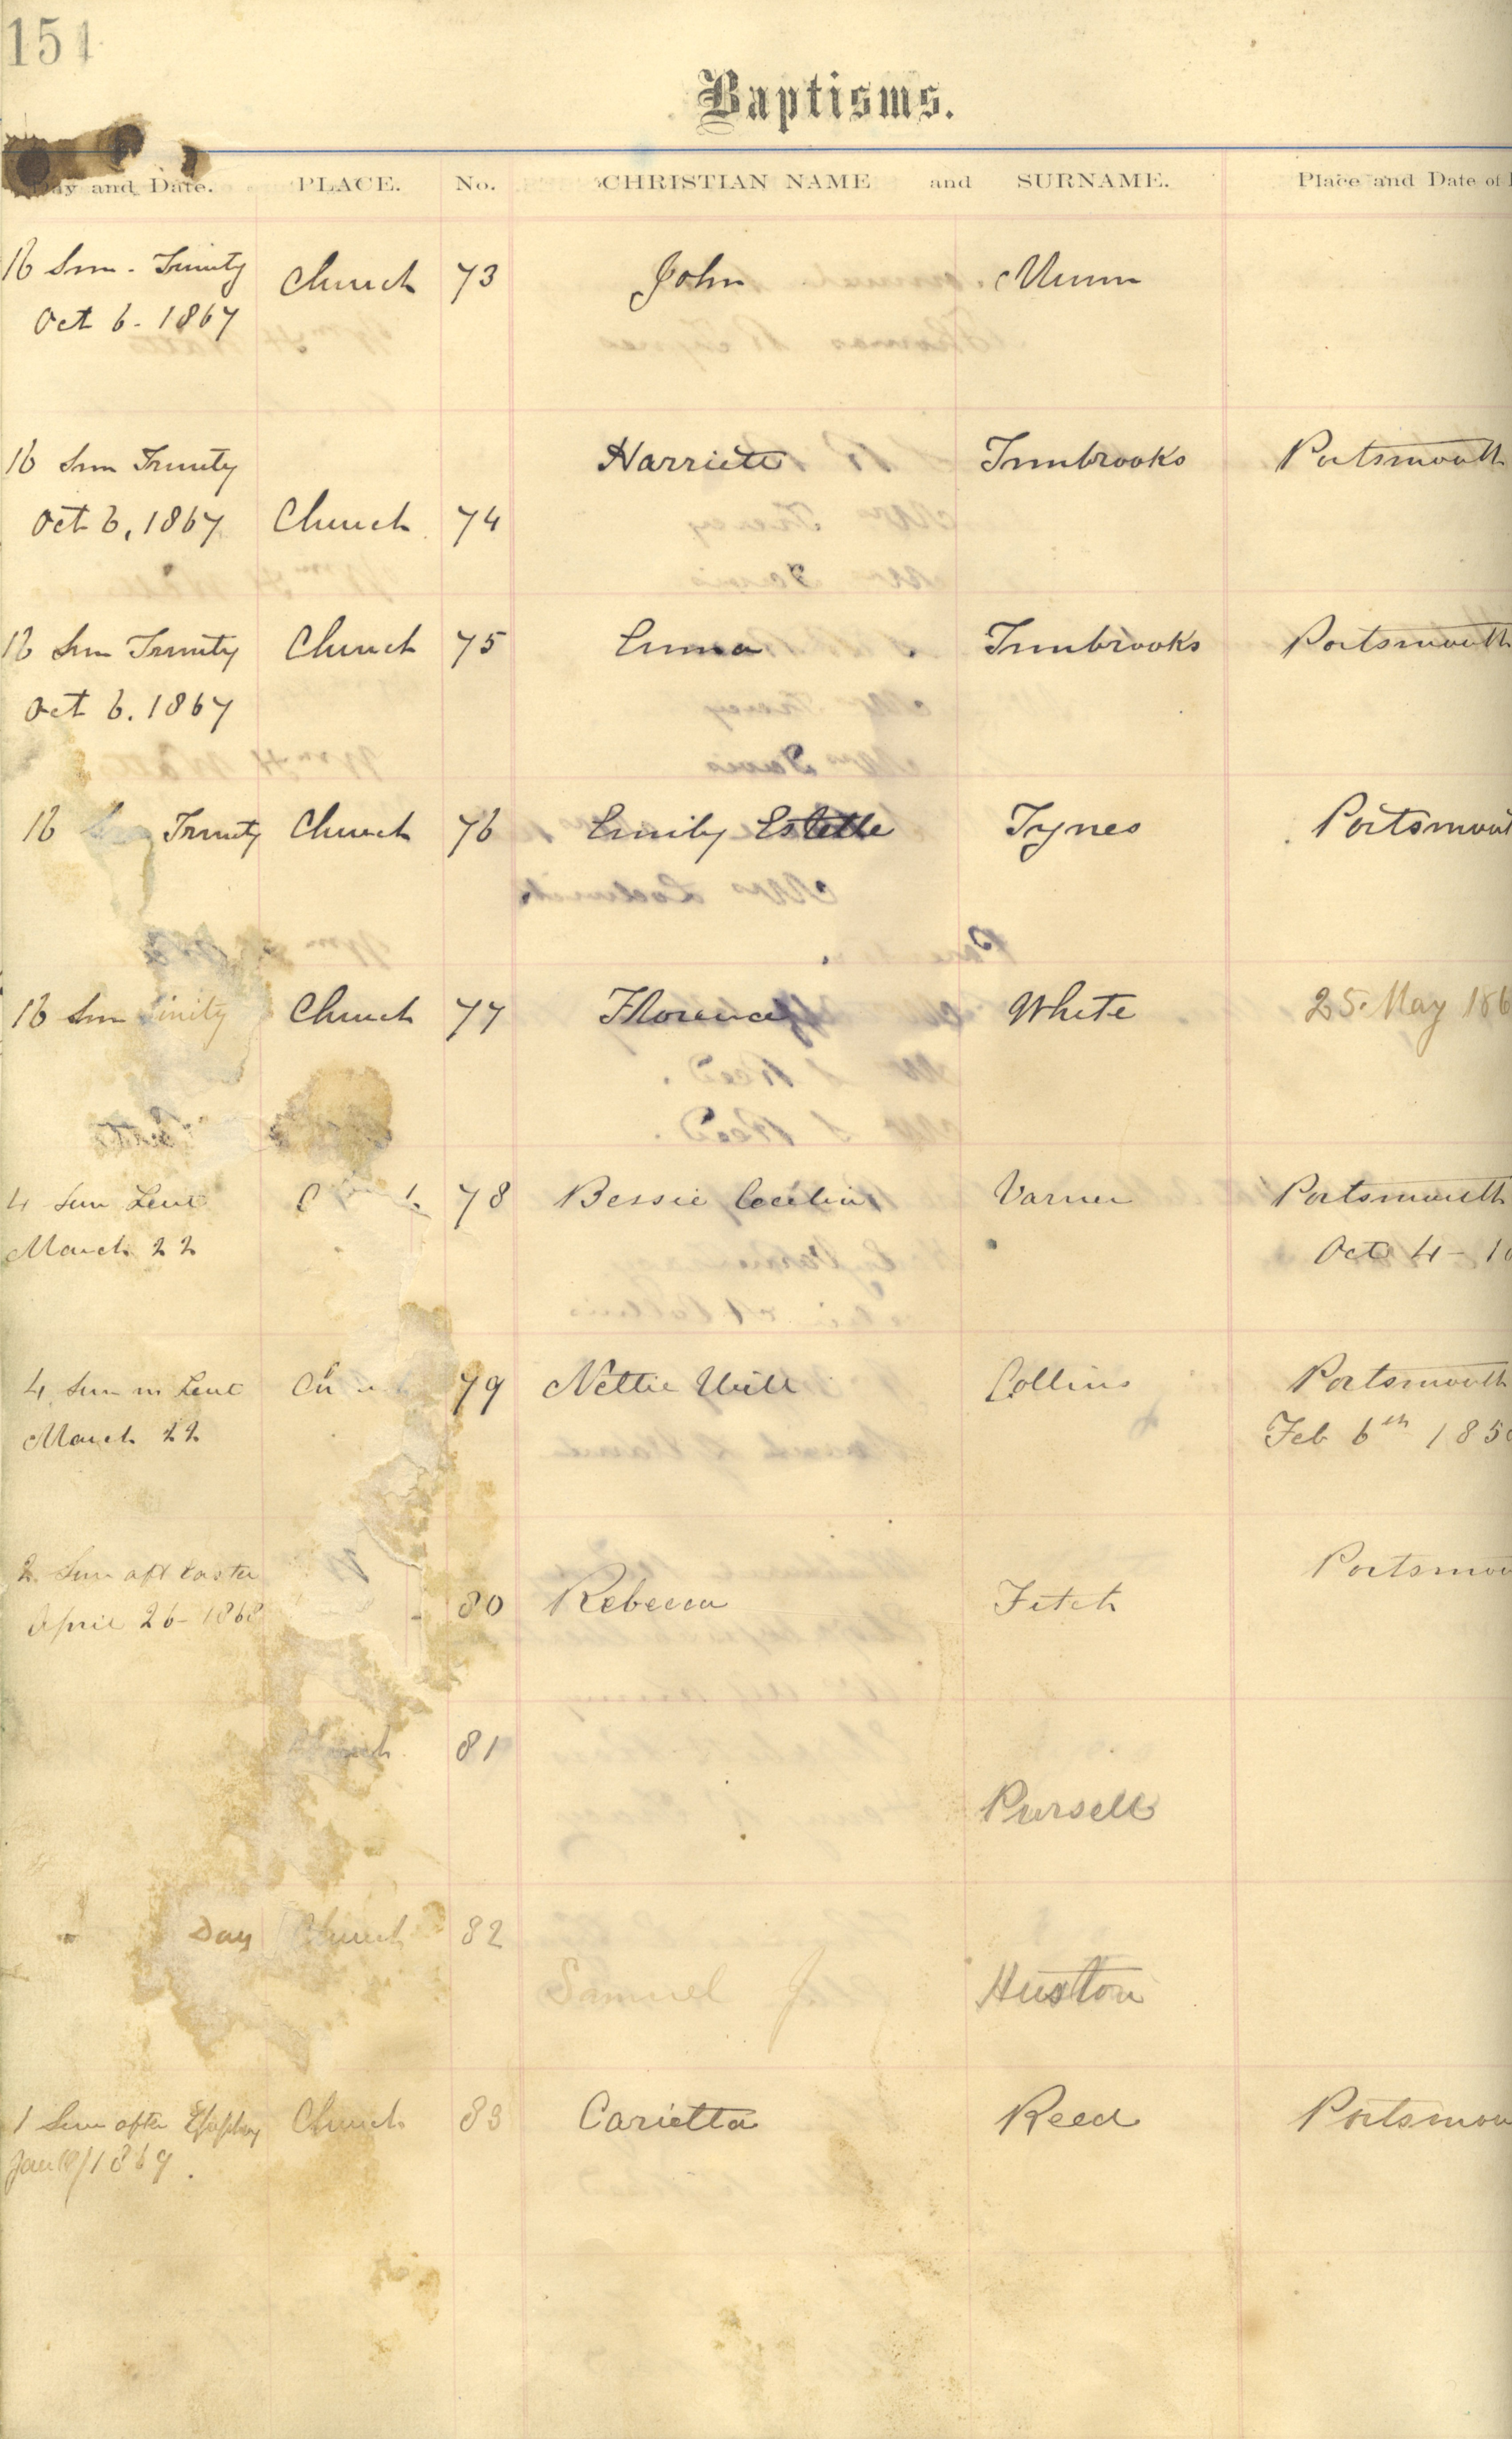 151
Baptisms.
Day and Date. PLACE. No. CHRISTIAN NAME and SURNAME. Place and Date of
16 Sun. Trinity Church 73 John Munn
Oct 6. 1867
16 Sun Trinity Harriett Portsmouth
Oct 6, 1867 Church 74
16 Sun Trinity Church 75 Emma Portsmouth
Oct 6. 1867
16 Trinity Church 76 Emily Estelle Tynes Portsmout
16 Sun inity Church 77 Florence White 25 May 186
4 Sun Lent 78 Bessie Cecelia Varner Portsmouth
March 22 Oct 4 - 1
4 Sun in Lent Ch 79 Nettie Collins Portsmouth
March 22 Feb 6th 185
2 Sun aft Easter Portsmou
April 26 - 1868 80 Rebecca Fetch
81
Pursell
Day Church 82
Samuel J Huston
1 Sun after Epiphany Church 83 Carietta Reed Portsmou
Jan 10/1869.